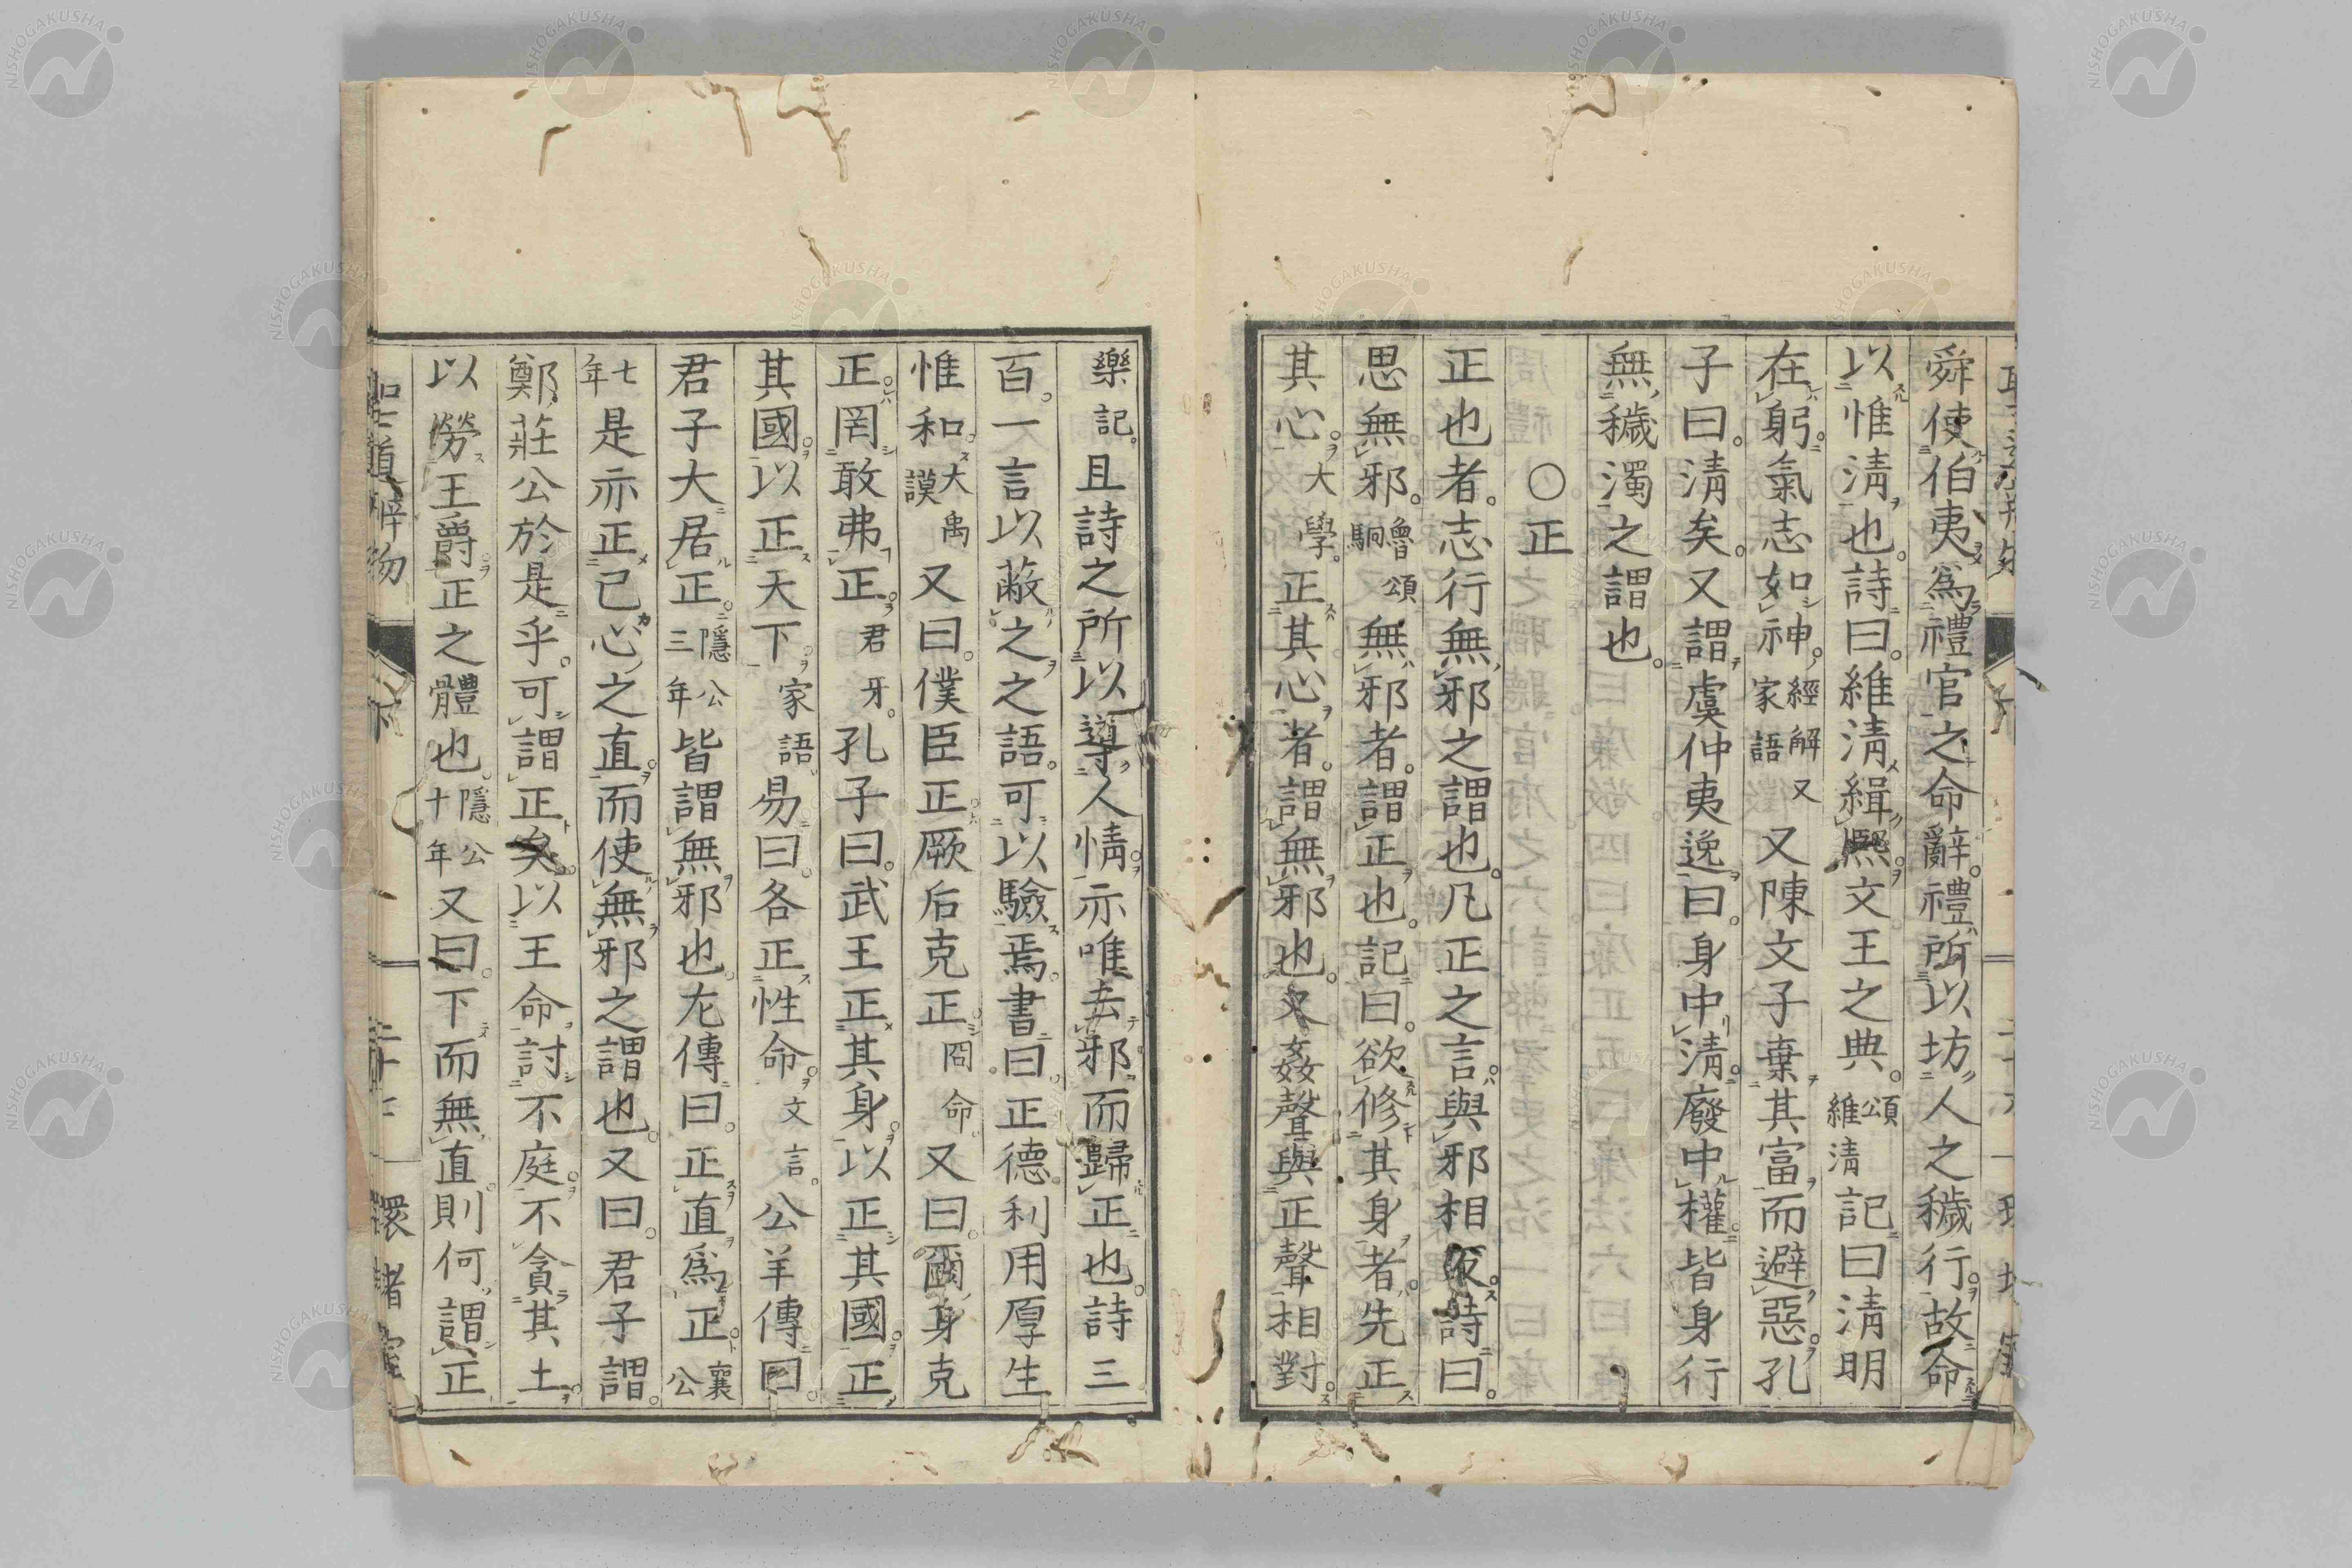 舜使伯夷爲禮官之命辭禮所以坊人之穢行故命
以惟淸也詩曰維淸緝熙文王之典頌維淸記曰淸明
在躬氣志如神經解又家語又陳文子棄其富而避惡孔
子曰淸矣又謂虞仲夷逸曰身中淸廢中權皆身行
無穢濁之謂也
〇正
正也者志行無邪之謂也凡正之言與邪相反詩曰
思無邪魯頌駉無邪者謂正也記曰欲修其身者先正
其心大學正其心者謂無邪也又姦聲與正聲相對
樂記且詩之所以導人情亦唯去邪而歸正也詩三
百一言以蔽之之語可以驗焉書曰正德利用厚生
惟和大禹謨又曰僕臣正厥后克正冏命又曰爾身克
正罔敢弗正君牙孔子曰武王正其身以正其國正
其國以正天下家語易曰各正性命文言公羊傳曰
君子大居正隱公三年皆謂無邪也左傳曰正直爲正襄公
七年是亦正己心之直而使無邪之謂也又曰君子謂
鄭莊公於是乎可謂正矣以王命討不庭不貪其土
以勞王爵正之體也隱公十年又曰下而無直則何謂正
聖道辨物
下
環堵室
NISHOGAKUSHA